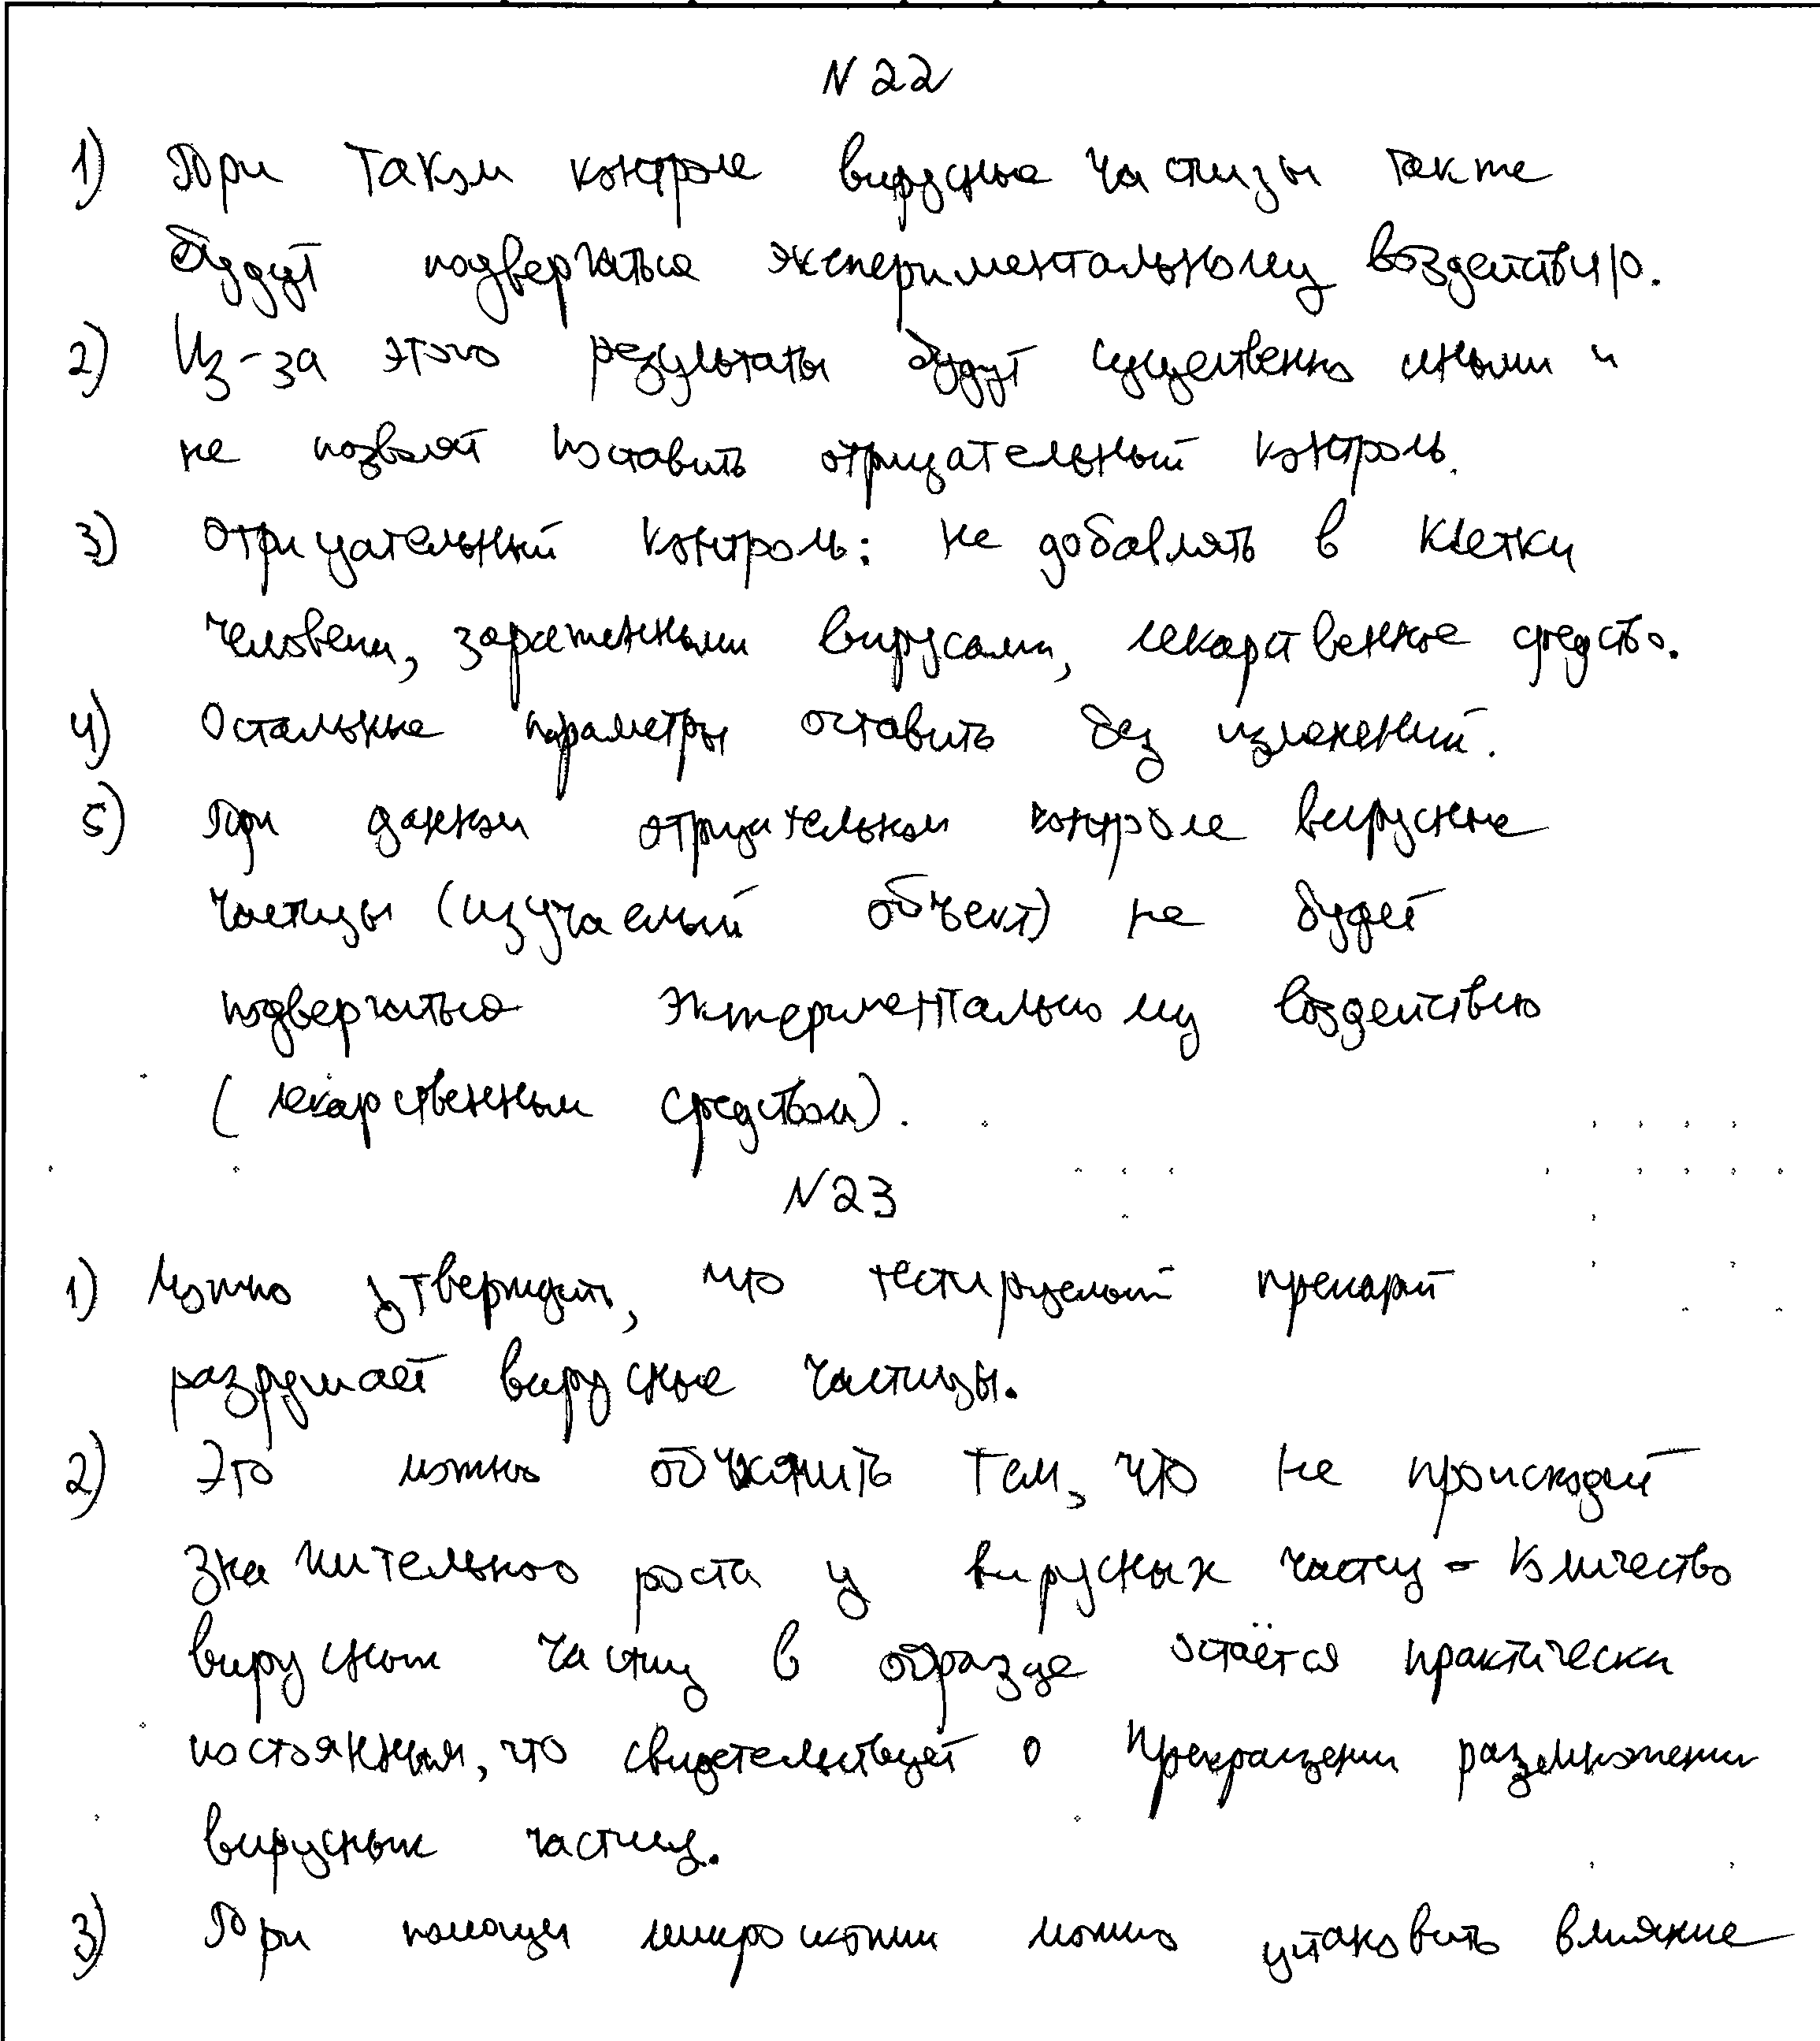 N 22
1) При таком контроле вирусные частицы также
будут подвергаться экспериментальному воздействию.
2) Из-за этого результаты будут существенно иными и
не позволят поставить отрицательный контроль.
3) Отрицательный контроль: не добавлять в клетки
человека, зараженными вирусами, лекарственное средство.
4) Остальные параметры оставить без изменений.
5) При данном отрицательном контроле вирусные
частицы (изучаемый объект) не будет
подвергаться экспериментальному воздействию
(лекарственным средством).
N 23
1) Можно утверждать, что тестируемый препарат
разрушает вирусные частицы.
2) Это можно объяснить тем, что не происходит
значительного роста у вирусных частиц - количество
вирусных частиц в образце остаётся практически
постоянным, что свидетельствует о прекращении размножения
вирусных частиц.
3) При помощи микроскопии можно установить влияние